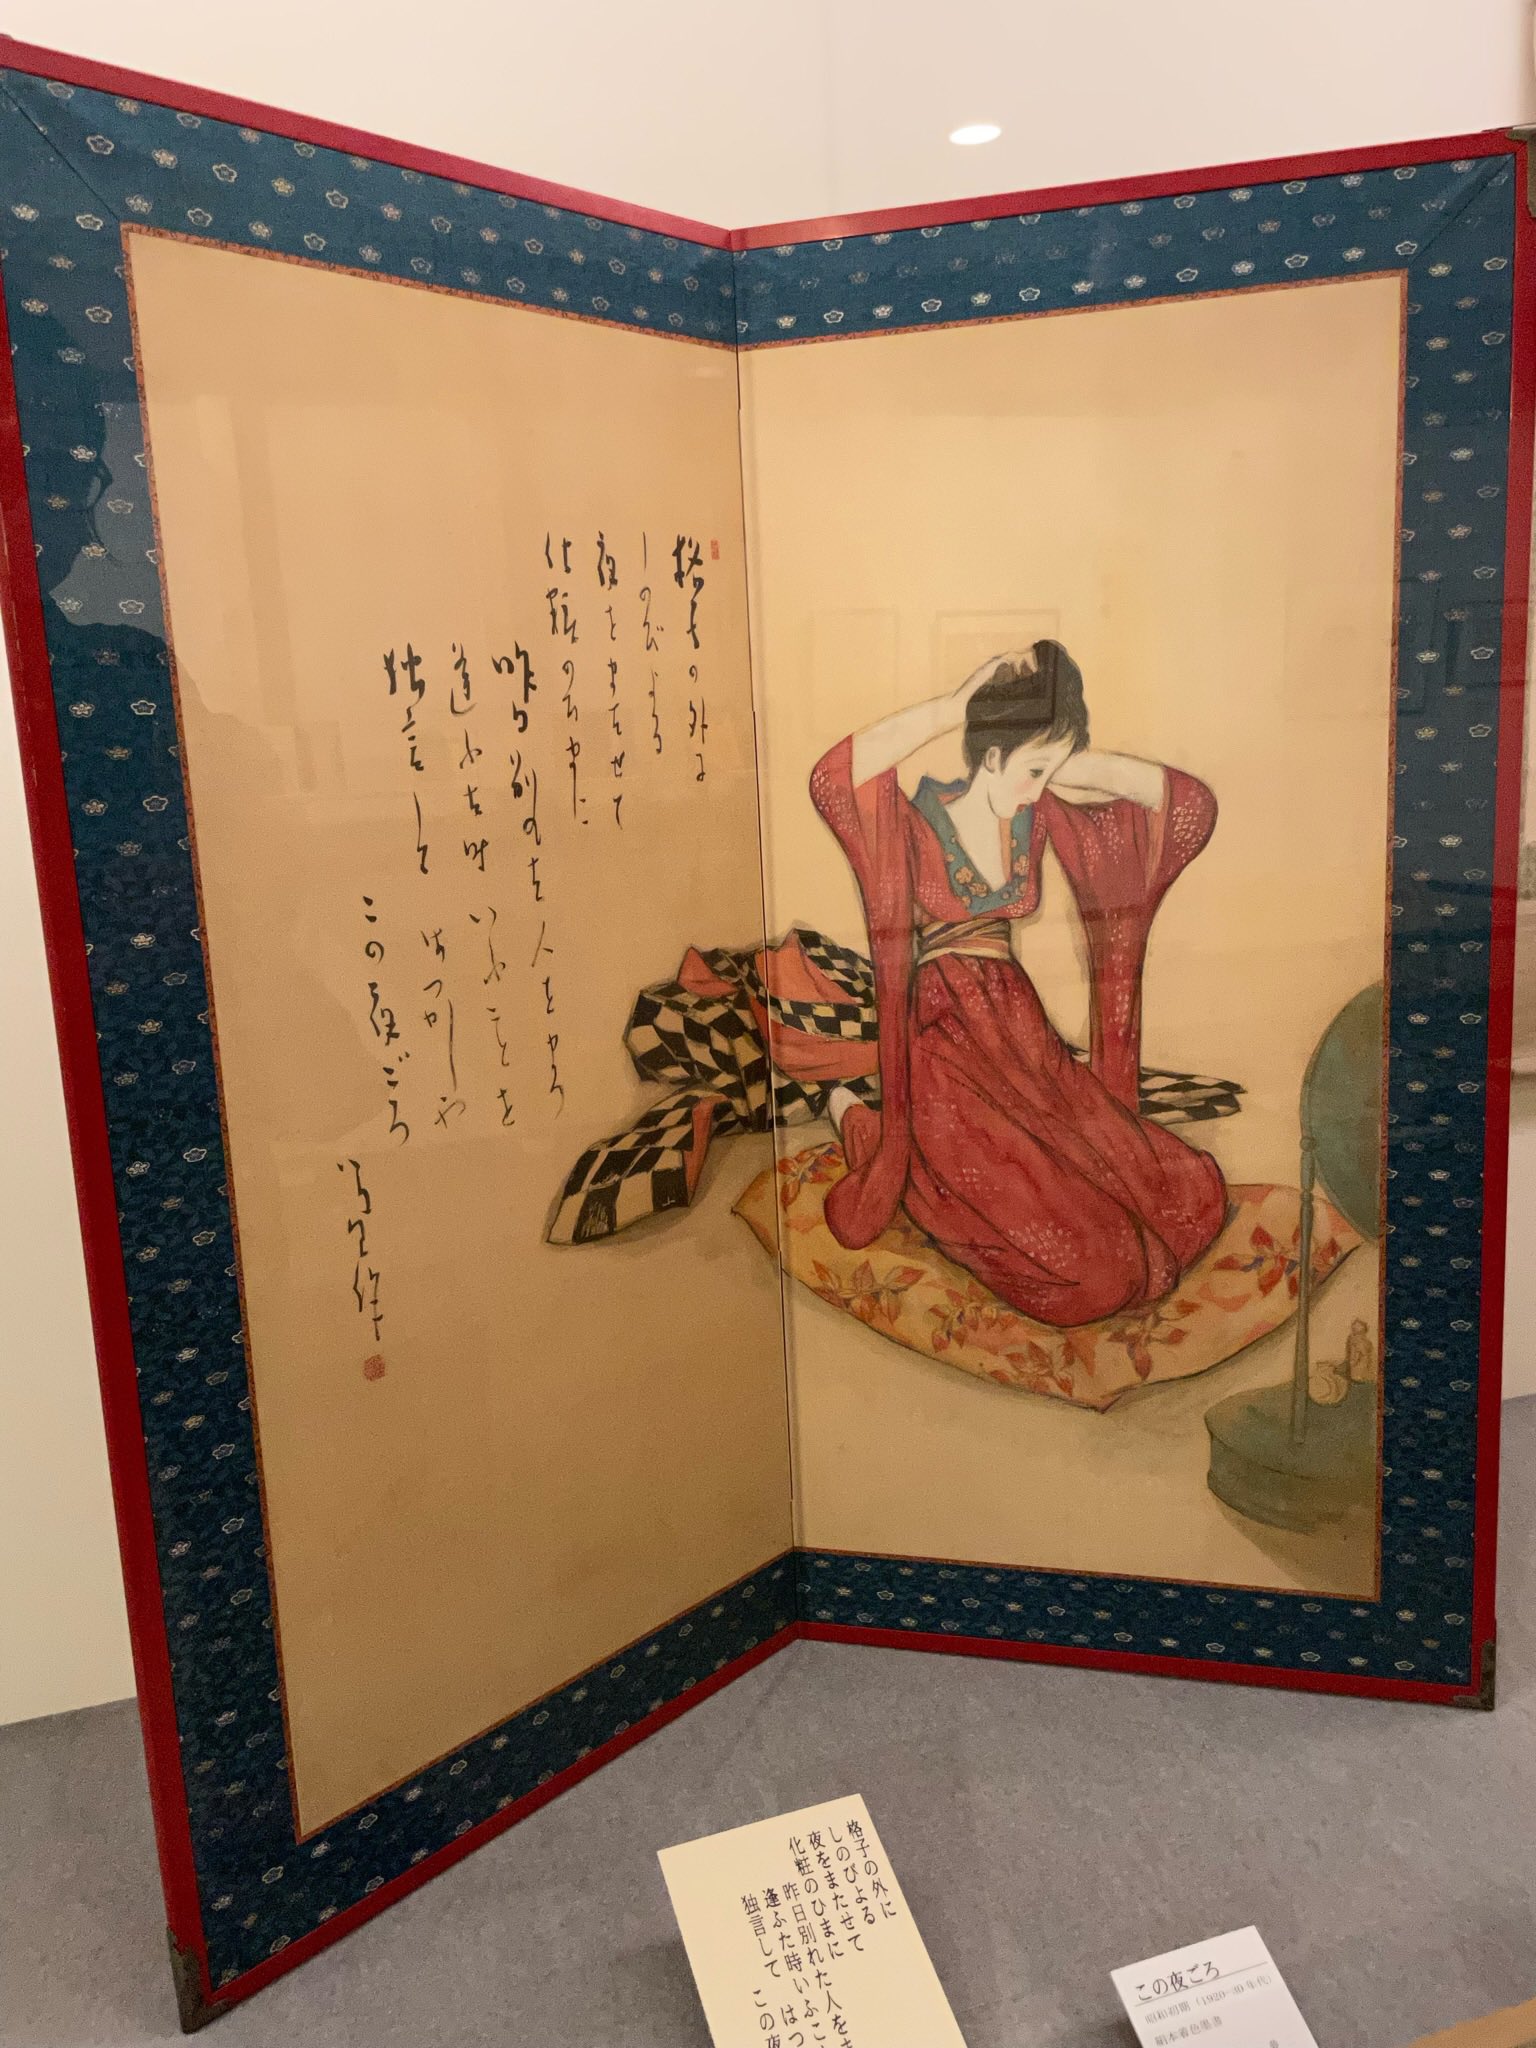 格子の外に
しのびよる
夜をまたせて
化粧のひまに
昨日別れた人をまつ
逢ふた時いふことを
独言して はつかしや
この夜ごろ
作
格子の外に
しのびよる
夜をまたせて
化粧のひまに
昨日別れた人をま
逢ふた時いふこ
独言して はつ
この夜
この夜ごろ
昭和初期（1920-30年代）
絹本着色墨書